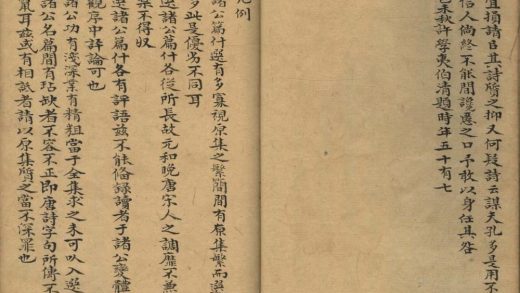 宜損請旦其詩質之抑又何疑詩云謀夫孔多是用不
信人倘終不能間讒慝之口予敢以身任其咎
己未秋許學夷伯清題時年五十有七
凡例
選諸公篇什選有多寡視原集之繁簡間有原集繁而選
多此是優劣不同耳
選諸公篇什各從所長故元和晚唐宋人之調靡不兼
采不得収
選諸公篇什各有評語茲不能俻録讀者于諸公變體
觀序中評論可也
諸公功有淺深業有精粗當于全集求之未可以入選
諸公名篇間有玷缺者不容不正即唐詩字句所傳不
鼠耳茲或有相詆者請以原集質之當不深罪也